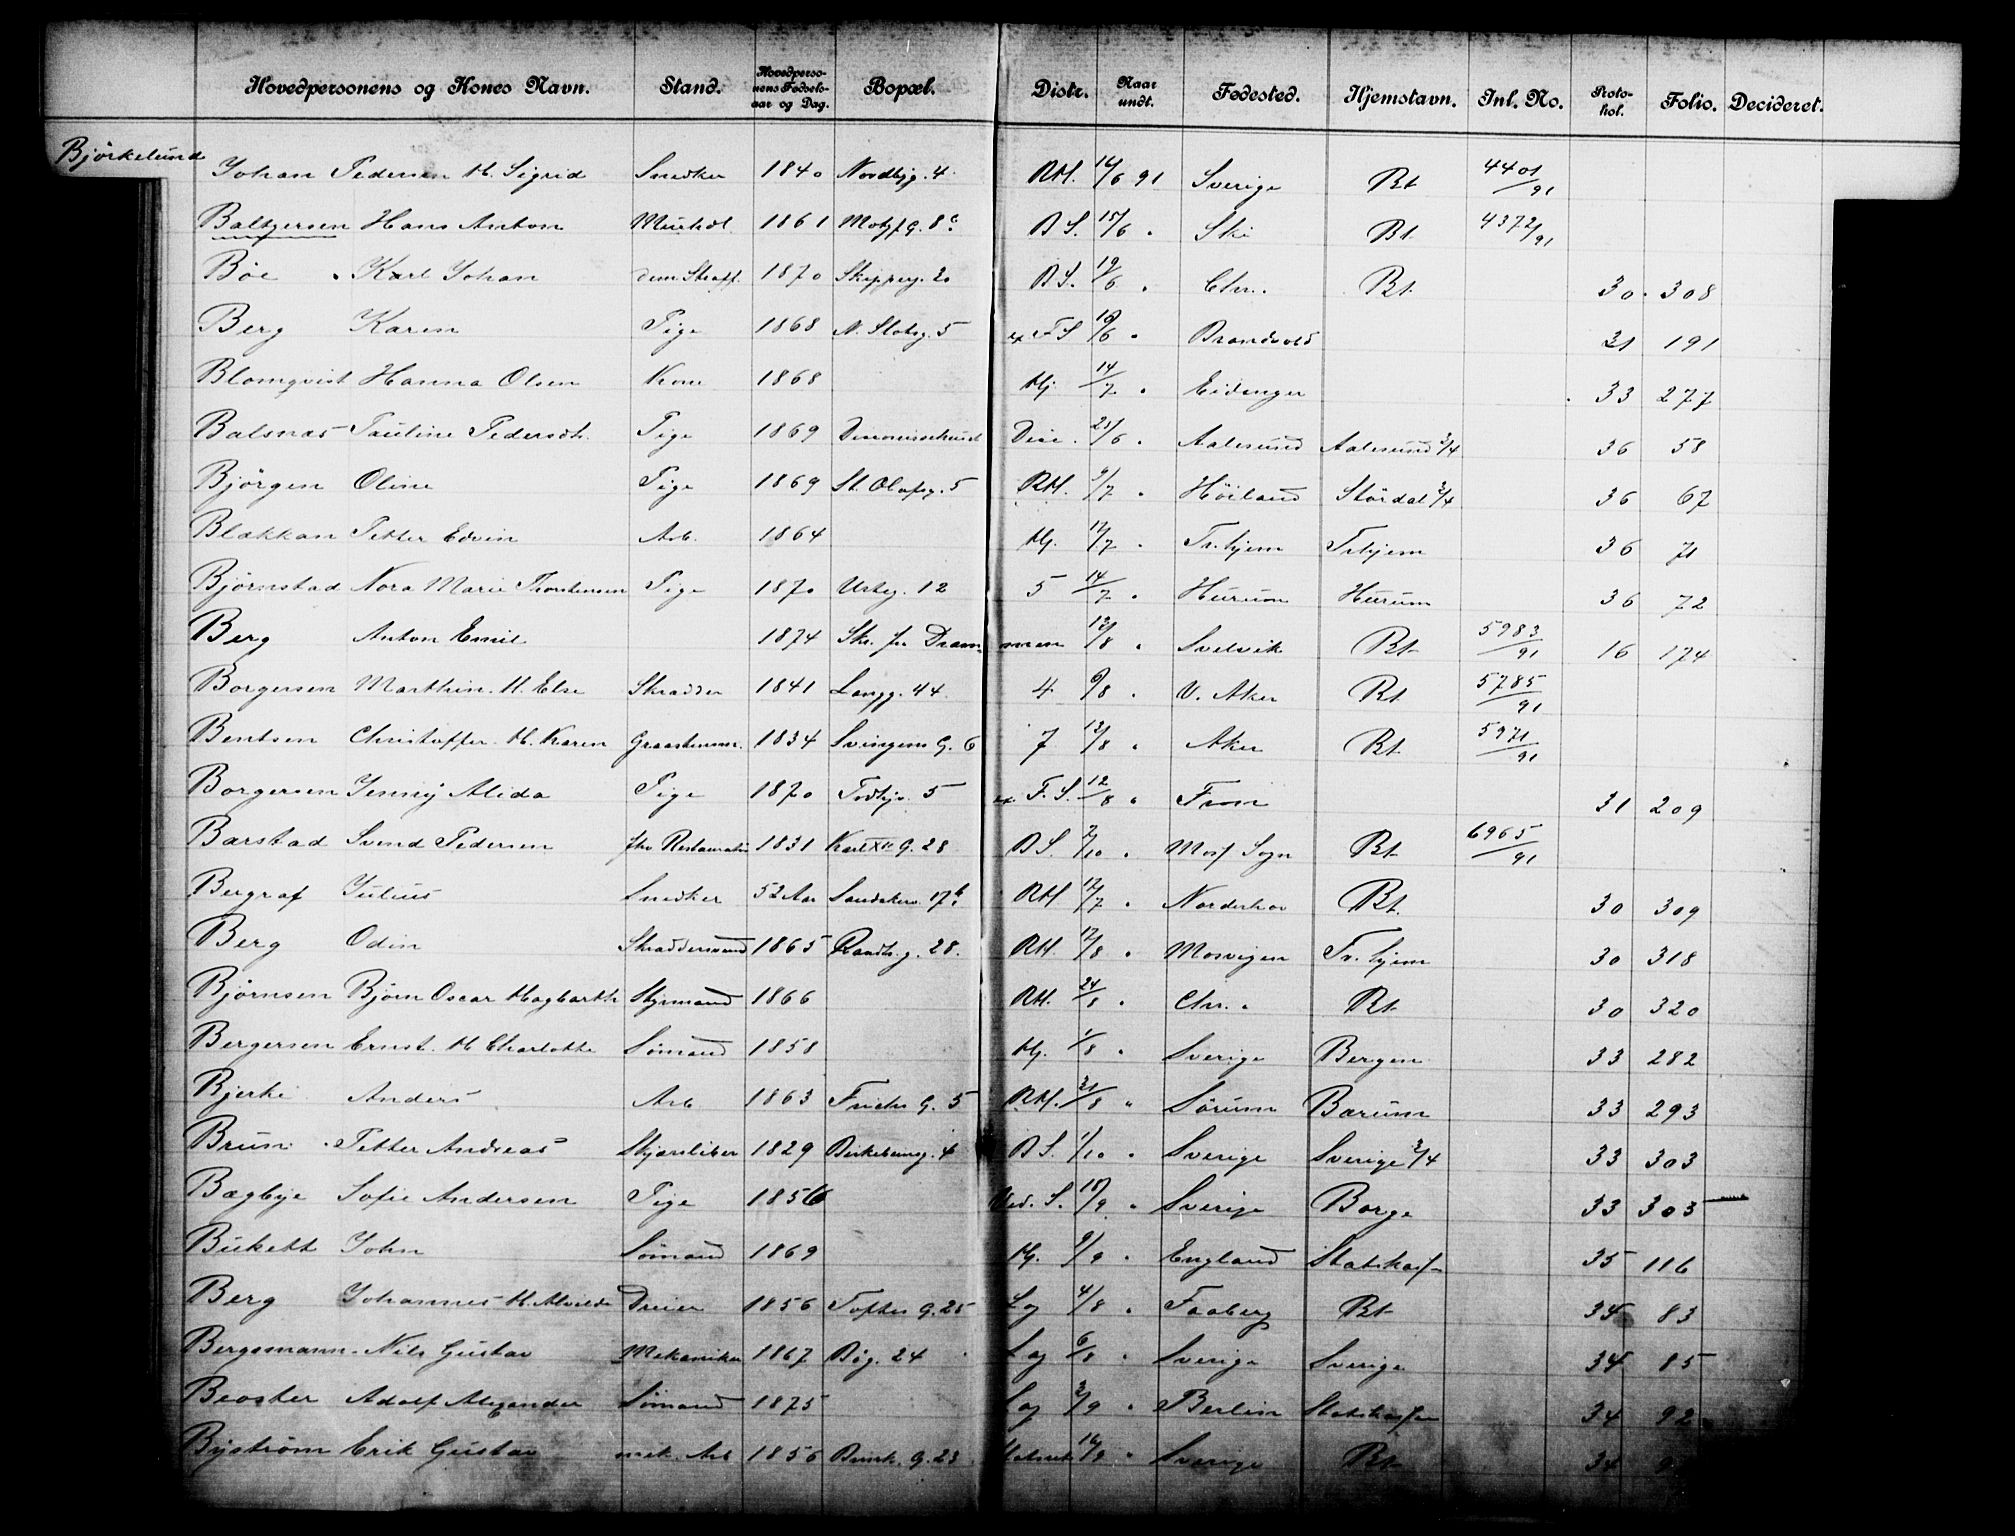 Hovedpersonens og Kones Navn. Stand. Hovedpersonens Fødselsaar og Dag. Bopæl. Distr. Naar undt. Fødested. Hjemstavn. Inl. No. Protokol. Folio. Decideret.
Björkelund Johan Pedersen H. Sigrid Snedker 1840 Nordbyg. 4 RH. 16/6 91 Sverige Bt 4401/91
Baltzersen Hans Anton 1861 Motzf G. 8c BS. 15/6 " Ski Bt. 4372/91
Böe Karl Johan 1870 Skipperg. 20 BS. 19/6 " Chr. Bt. 30 308
Berg Karen Pige 1868 N. Slotsg. 5 ex FS 18/6 " Brandvold 31 191
Blomqvist Hanna Olsen Kone 1868 Hj 14/7 " Eidanger 33 277
Balsnæs Pauline Pedersdtr. Pige 1869 Diac. 21/6 " Aalesund Aalesund 3/4 36 58
Björgen Oline Pige 1869 St. Olafsg. 5 RH. 9/7 " Höiland Stördal 3/4 36 67
Blækkan Petter Edvin Arb. 1864 Hj. 11/7 " Tr.hjem Trhjem 36 71
Björnstad Nora Marie Thorstensen Pige 1870 Urteg. 12 5 14/7 " Hurum Hurum 36 72
Berg Anton Emil 1874 Skr. fra Drammen 12/8 " Svelvik Bt 5983/91 16 174
Borgersen Marthin. H. Else Skrædder 1841 Langg. 44. 4 6/8 " V. Aker Bt 5785/91
Bentsen Christoffer. H. Karen 1834 Svingens G. 6 7 12/8 " Aker Bt. 5971/91
Borgersen Jenny Alida Pige 1870 5 ex. F. S. 12/8 " Fron 31 209
Barstad Svend Pedersen fhv Restauratør 1831 Karl XII G. 28 BS. 2/10 " Moss Sogn Bt 6965/91
Bergraf Julius Snedker 52 Aar Sandaker. 17b RH 12/7 " Norderhov Bt. 30 309
Berg Odin Skræddersvend 1865 28. RH. 12/8 " Mosvigen Tr. hjem 30 318
Björnsen Björn Oscar Hagbarth Styrmand 1866 RH. 24/8 " Chr. Bt 30 320
Bergersen Ernst. H Charlotte Sömand 1858 Hj. 1/8 " Sverige Bergen 33 282
Bjerke Anders Arb 1863 Frichs G. 5 RH. 21/8 " Sörum Bærum 33 293
Brun Petter Andreas Skjærsliber 1829 Birkebeinerg. 4 BS. 1/10 " Sverige Sverige 3/4 33 303
Bægbye Sofie Andersen Pige 1856 Ved. S. 18/9 " Sverige Borge 33 303
Birkett John Sömand 1869 Hj. 9/9 " England Statskassen 35 116
Berg Johannes H. Alvilde Dreier 1856 Toftes G. 25 Log 4/8 " Faaberg Bt 34 83
Bergsmann Nils Gustav Mekaniker 1867 Bög. 24 Log 6/8 " Sverige Sverige 34 85
Beoster Adolf Alexander Sömand 1875 Log 3/9 " Berlin Statskassen 34 92
Byström Erik Gustav mek. Arb 1856 G. 23 16/9 " Sverige Bt 34